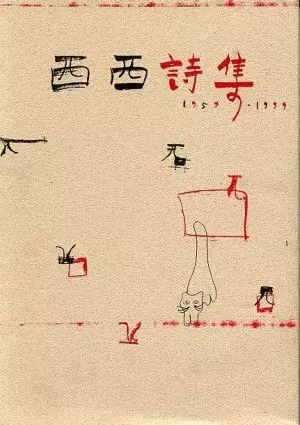 西西詩集
1959-1999